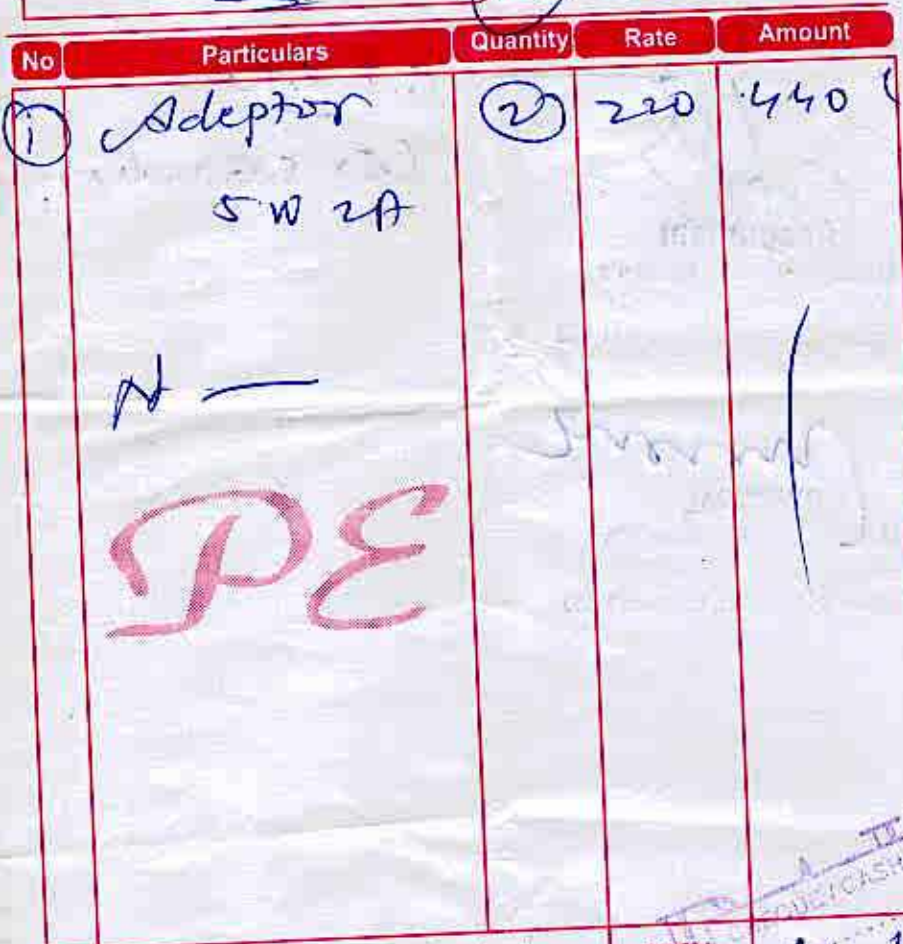 No Particulars Quantity Rate Amount
1 Adeptor 2 220 440
5 W 2A
N —
PE